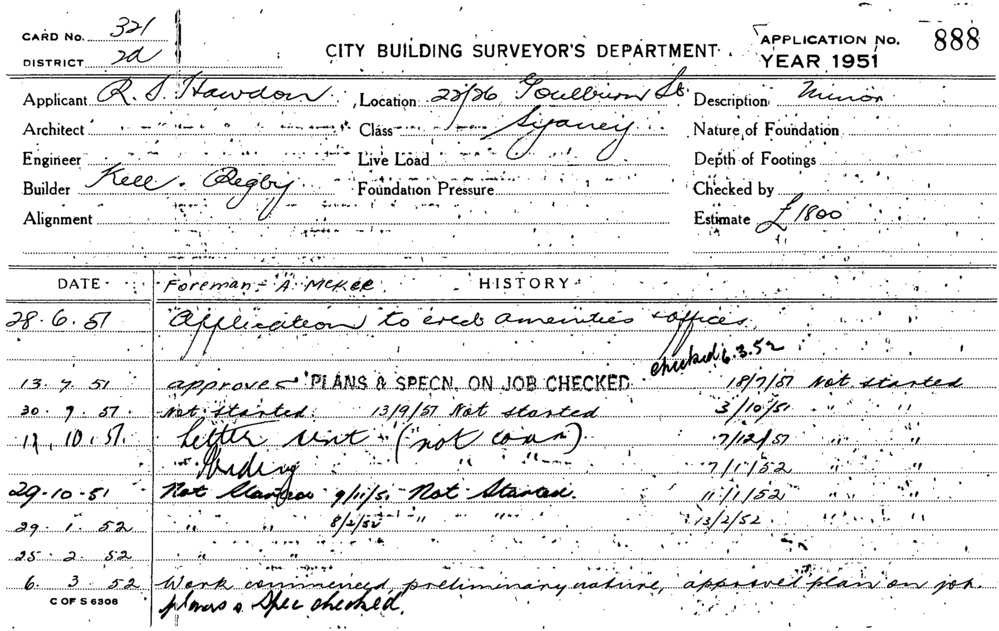 CARD No. 321
DISTRICT 2d
CITY BUILDING SURVEYOR'S DEPARTMENT
APPLICATION No. 888
YEAR 1951
Applicant R. S. Hawdon Location 22/26 Goulburn St Description Minor
Architect Class Sydney Nature of Foundation
Engineer Live Load Depth of Footings
Builder Kell & Rigby Foundation Pressure Checked by
Alignment Estimate £1800
DATE Foreman - A. McKee HISTORY
28.6.51 Application to erect amenities & offices
checked 6.3.52
13.7.51 approved PLANS & SPECN. ON JOB CHECKED 18/7/51 Not started
30.7.51 Not started. 13/9/51 Not started 3/10/51 " "
11.10.51 Letter sent (not com) 7/12/51 " "
" " 7/1/52 " "
29.10.51 Not Started 9/11/51 Not Started. 11/1/52 " "
29.1.52 " " 8/2/52 " " 13/2/52 " "
25.2.52 " "
6.3.52 Work commenced, preliminary nature, approved plan on job
C OF S 6306 plans & Spec checked.